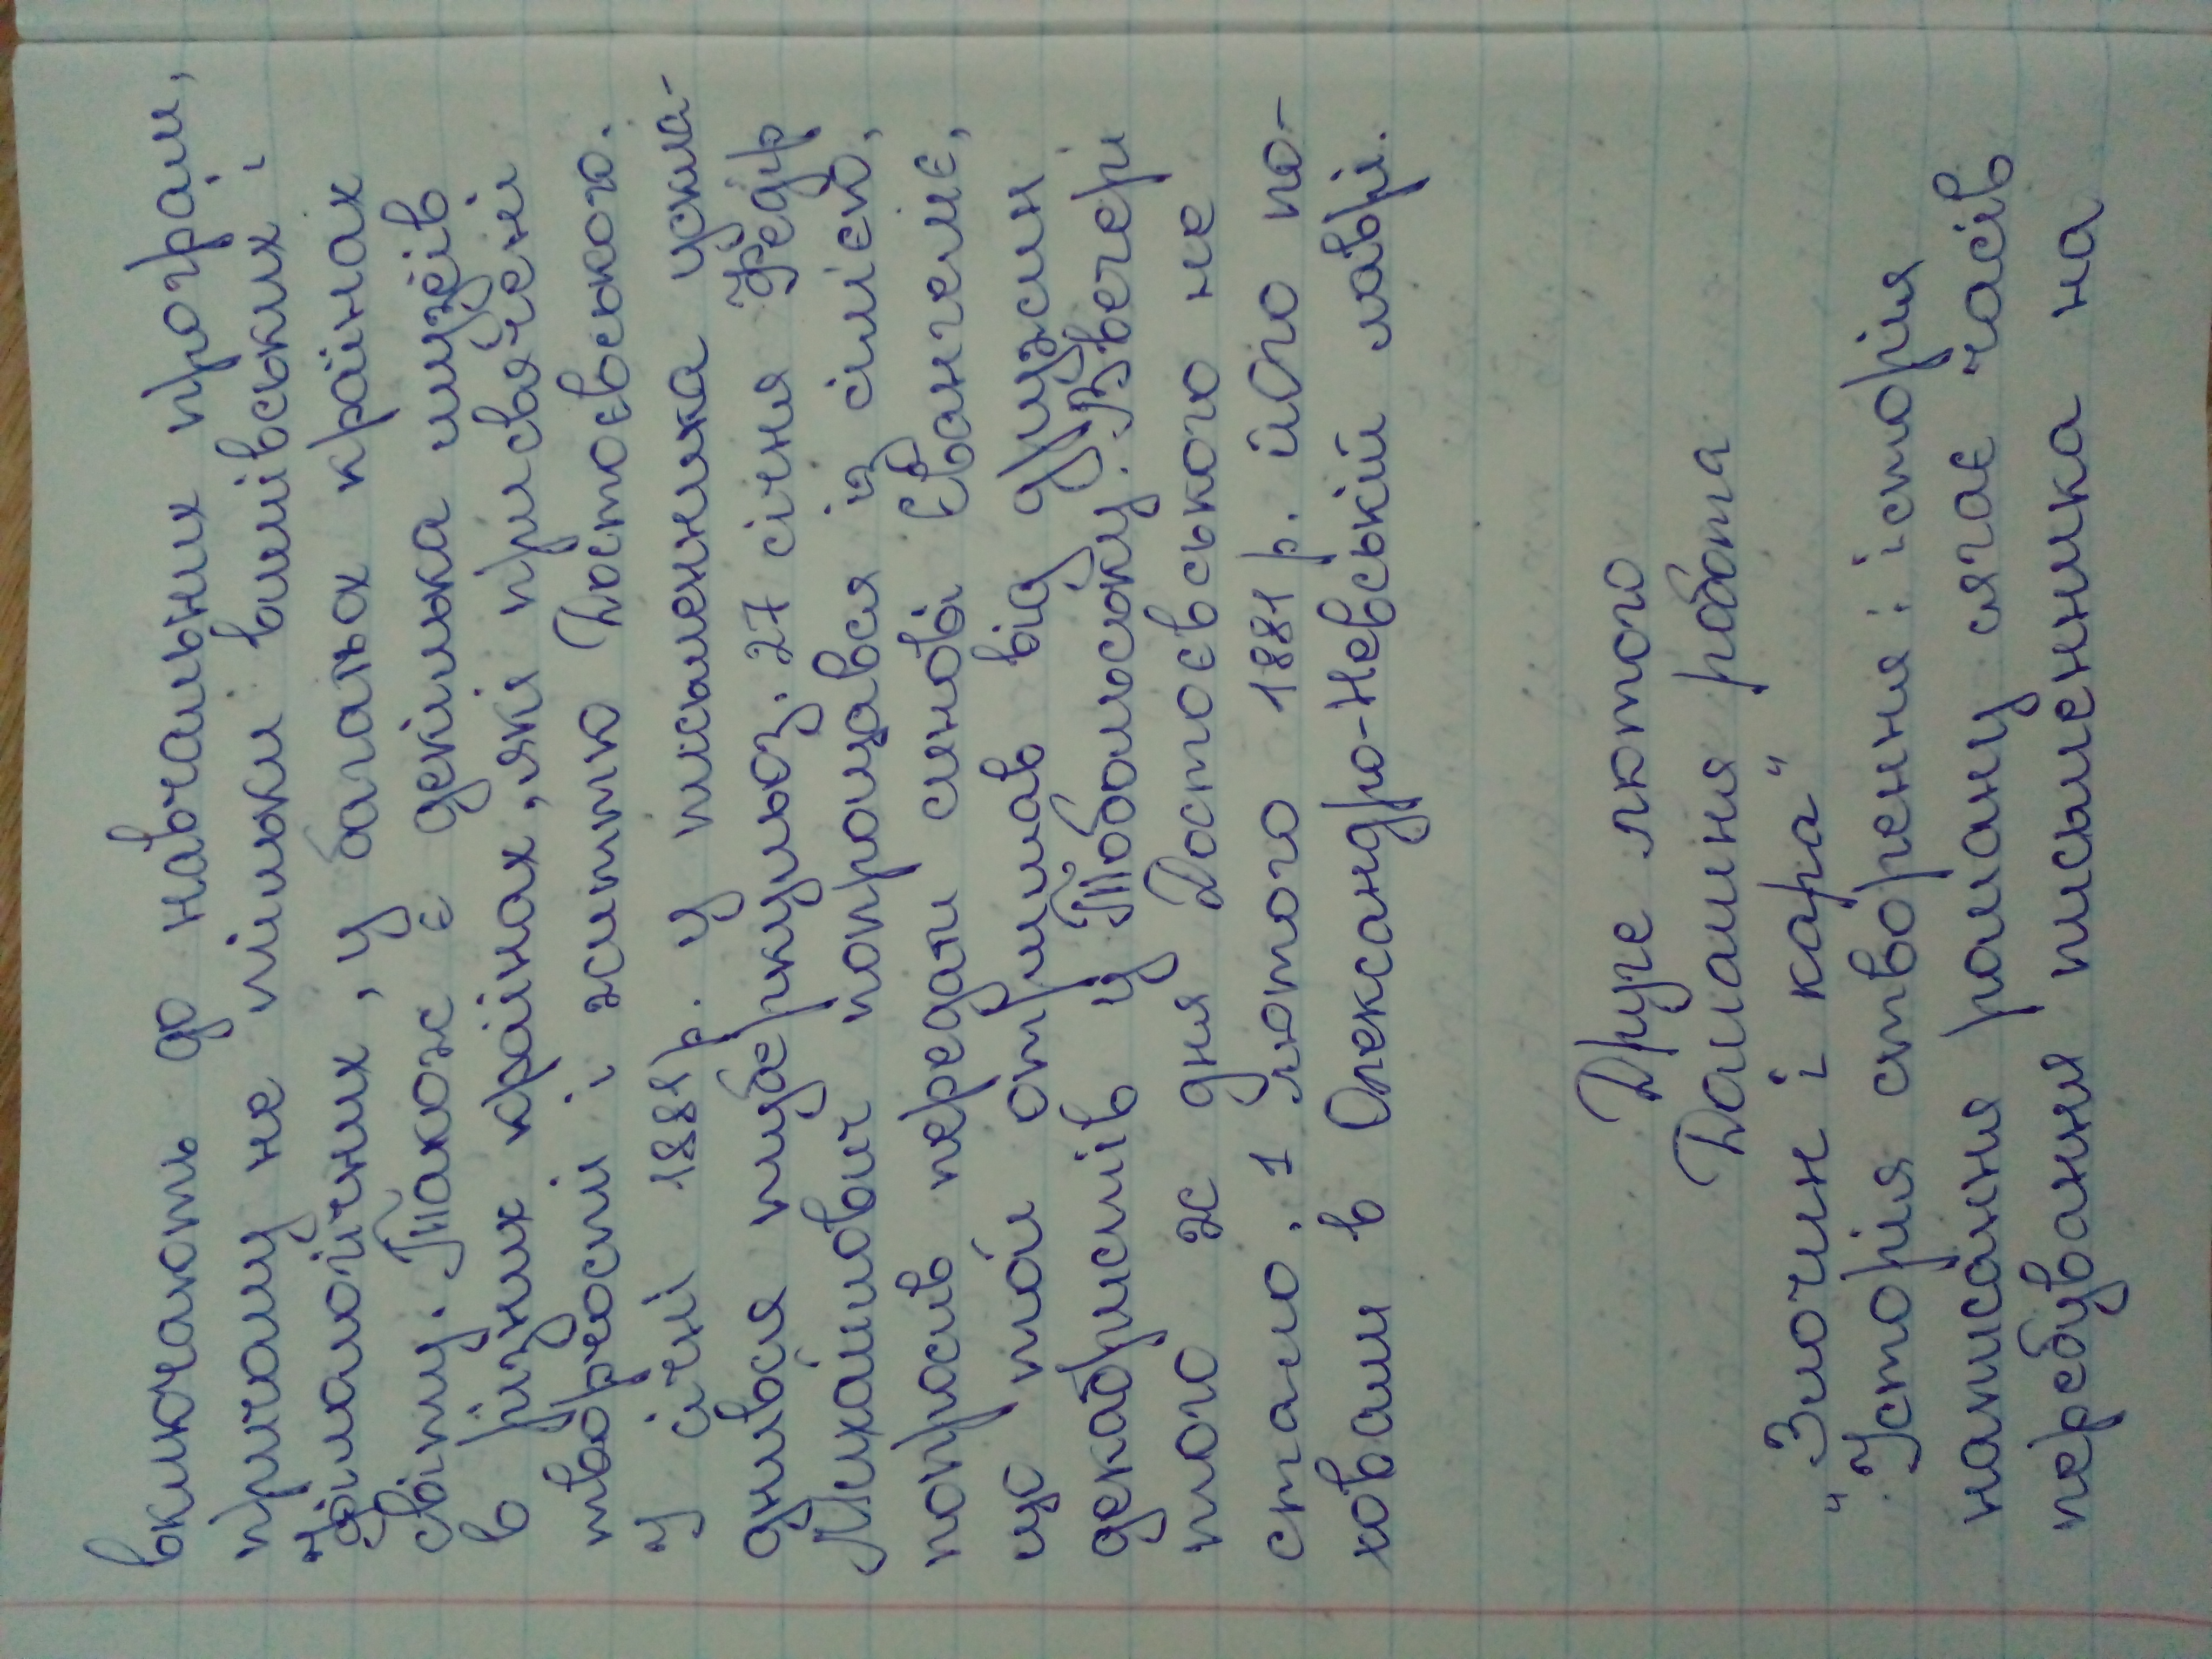 включають до навчальних програм,
причому не тільки вишівських і
філологічних, у багатьох країнах
світу. Також є декілька музеїв
в різних країнах, які присвячені
творчості і життю Достоєвського.
У січні 1881р. у письменника усклад-
днився туберкульоз. 27 січня Федір
Михайлович попрощався із сім'єю,
попросив передати синові Євангеліє,
що той отримав від дружин
декабристів у Тобольську. Ввечері
того ж дня Достоєвського не
стало. 1 лютого 1881 р. його по-
ховали в Олександро-Невській лаврі.
Друге лютого
Домашня робота
"Злочин і кара"
Історія створення: історія
написання роману сягає часів
перебування письменника на